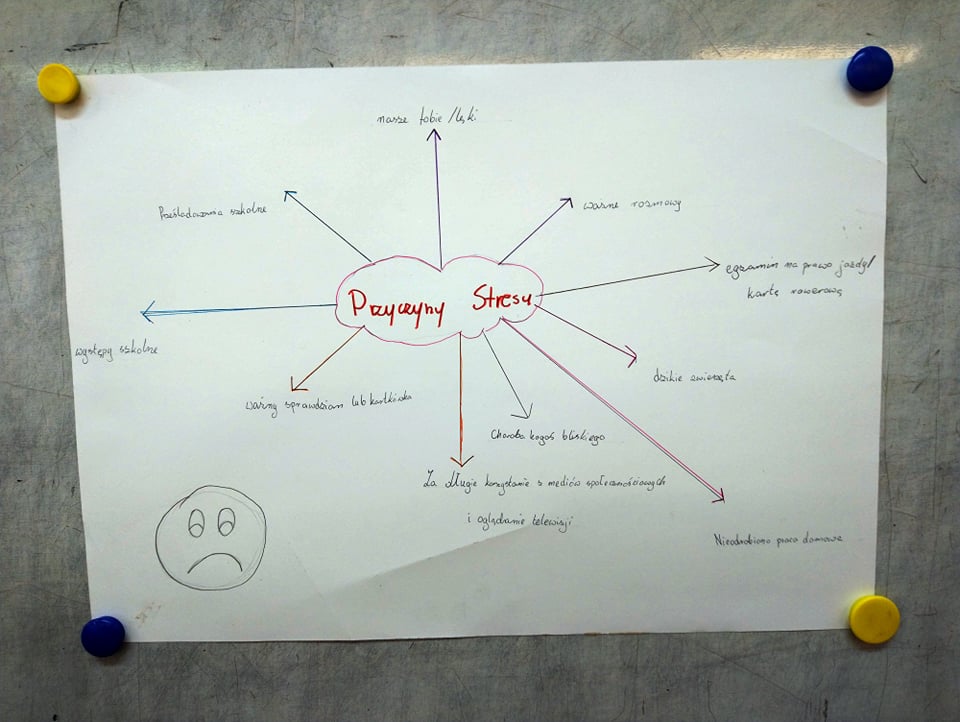 nasze fobie / lęki
Prześladowania szkolne
ważne rozmowy
egzamin na prawo jazdy/
kartę rowerową
Przyczyny Stresu
występy szkolne
dzikie zwierzęta
ważny sprawdzian lub kartkówka
Choroba kogoś bliskiego
Za długie korzystanie z mediów społecznościowych
i oglądanie telewizji
Nieodrobiona praca domowa